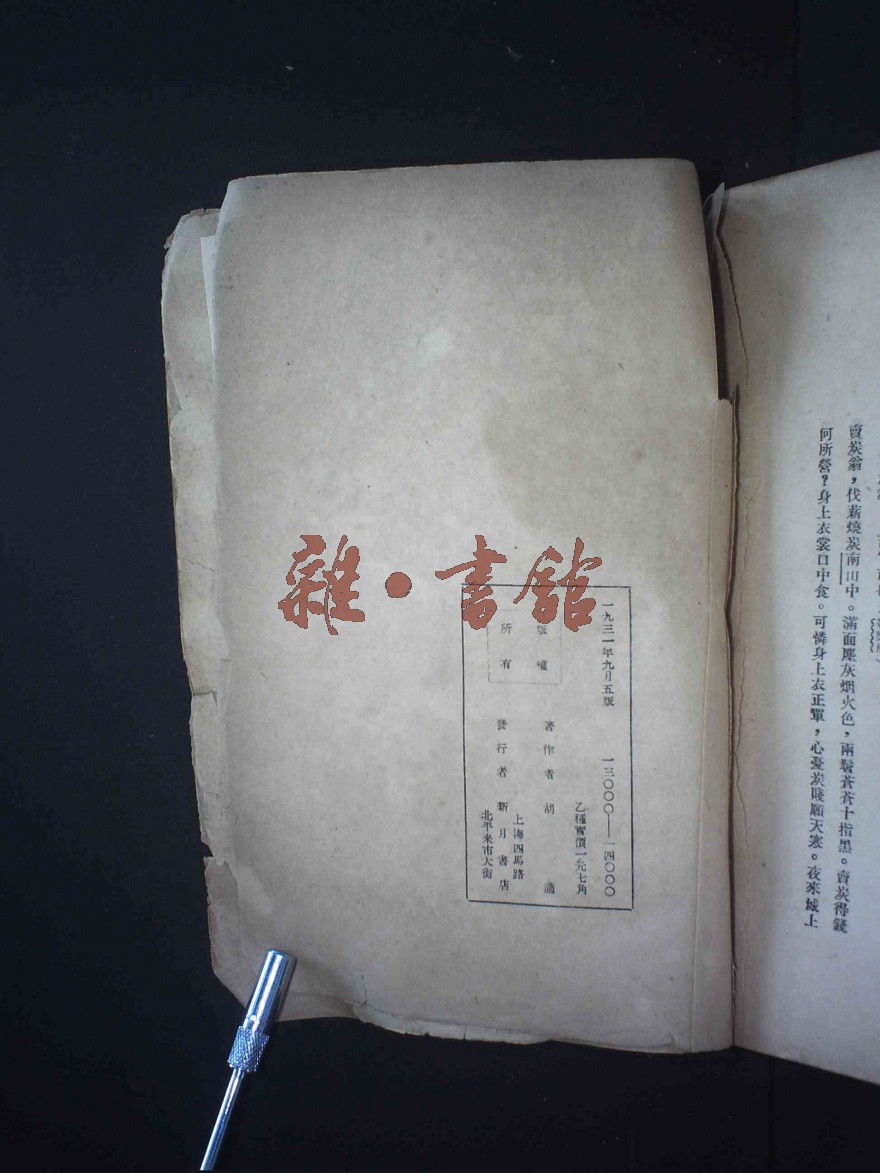 賣炭翁,伐薪燒炭南山中。滿面塵灰烟火色,兩鬢蒼蒼十指黑。賣炭得錢
何所營?身上衣裳口中食。可憐身上衣正單,心憂炭賤願天寒。夜來城上
一九三一年九月五版 一三〇〇〇—一四〇〇〇
乙種實價一元七角
版權
所有
著作者 胡適
發行者 新月書店
上海四馬路
北平米市大街
雜·書館